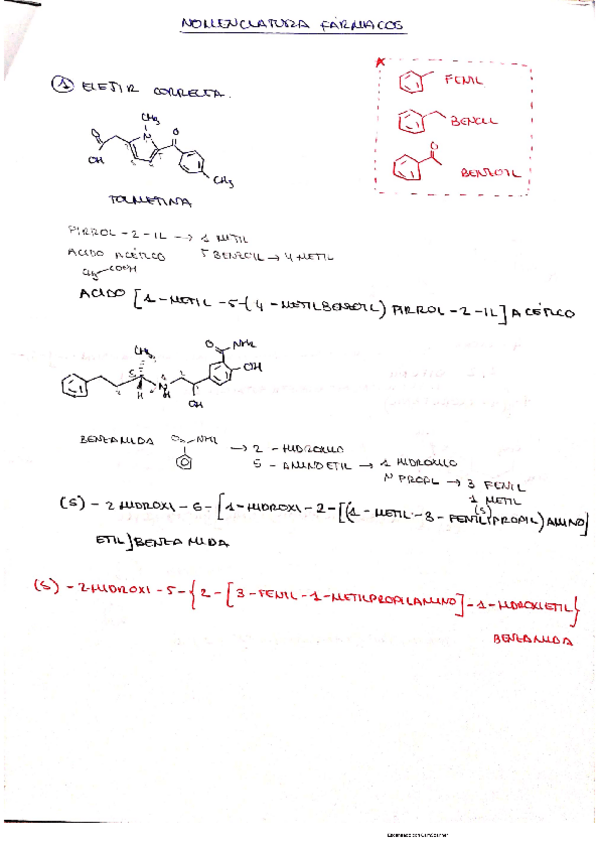 NOMENCLATURA FÁRMACOS
① ELEJIR CORRECTA.
* FENIL
BENCIL
BENZOIL
CH₃
N
O
O
OH
CH₃
TOLMETINA
PIRROL-2-IL → 1 METIL
ÁCIDO ACÉTICO 5 BENZOIL → 4 METIL
CH₃ COOH
ÁCIDO [1-METIL-5-(4-METILBENZOIL) PIRROL-2-IL] ACÉTICO
O NH₂
CH₃
OH
S
H N H
OH
BENZAMIDA O NH₂ → 2-HIDROXILO
5-AMINOETIL → 1 HIDROXILO
N PROPIL → 3 FENIL
1 METIL
(S)
(S)-2 HIDROXI-5-[1-HIDROXI-2-[(1-METIL-3-FENILPROPIL)AMINO]
ETIL]BENZAMIDA
(S)-2-HIDROXI-5-{2-[3-FENIL-1-METILPROPILAMINO]-1-HIDROXIETIL}
BENZAMIDA
Escaneado con CamScanner